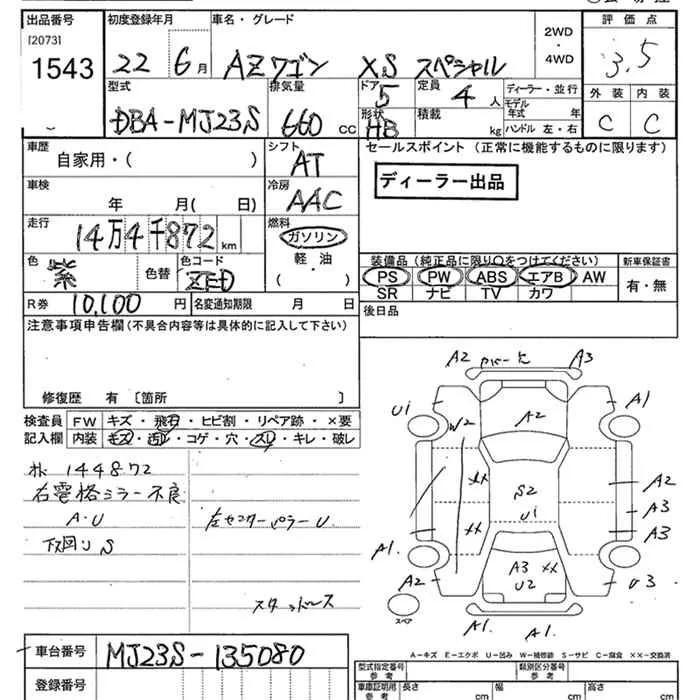 出品番号 初度登録年月 車名・グレード 2WD ・ 4WD 評価点
[2073]
1543 22年 6月 AZワゴン XS スペシャル 3.5
型式 排気量 ドア 5 定員 4人 ディーラー・並行 外装 内装
DBA-MJ23S 660cc 形状 HB 積載 kg モデル年式 年 C C
ハンドル 左・右
車歴 シフト セールスポイント (正常に機能するものに限ります)
自家用・( ) AT
車検 冷房 ディーラー出品
年 月( 日) AAC
走行 燃料
14万4千872km ガソリン
色 紫 色替 色コード ZED 軽・油 ( )
装備品(純正品に限り○をつけてください) 新車保証書
PS PW ABS エアB AW 有・無
SR ナビ TV カワ
R券 10,100円 名変通知期限 月 日 後日品
注意事項申告欄(不具合内容等は具体的に記入して下さい)
修復歴 有 〔箇所 〕
検査員記入欄 FW キズ・飛石・ヒビ割・リペア跡・×要
内装 キズ・汚レ・コゲ・穴・スレ・キレ・破レ
144872
右電格ミラー不良
A・U 左センターピラーU
下回りS
スタッドレス
A2 A3
U1 A2 A1
W2
XX S2 A2
XX U1 A3
A3
A1. A3 XX
A2 U2 U3
スペア A1. A1.
A-キズ E-エクボ U-凹み W-補修跡 S-サビ C-腐食 XX-交換済
車台番号 MJ23S-135080
登録番号
型式指定番号 参考 類別区分番号 参考
車庫証明用 参考 長さ cm 幅 cm 高さ cm